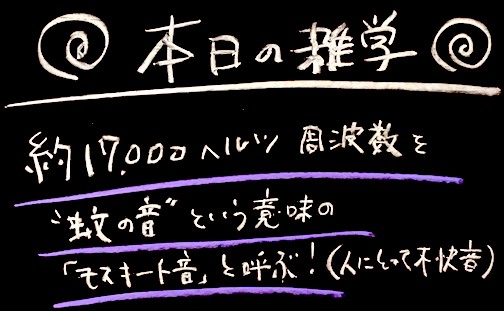 本日の雑学
約17,000ヘルツ 周波数を
"蚊の音"という意味の
「モスキート音」と呼ぶ!(人にとって不快音)